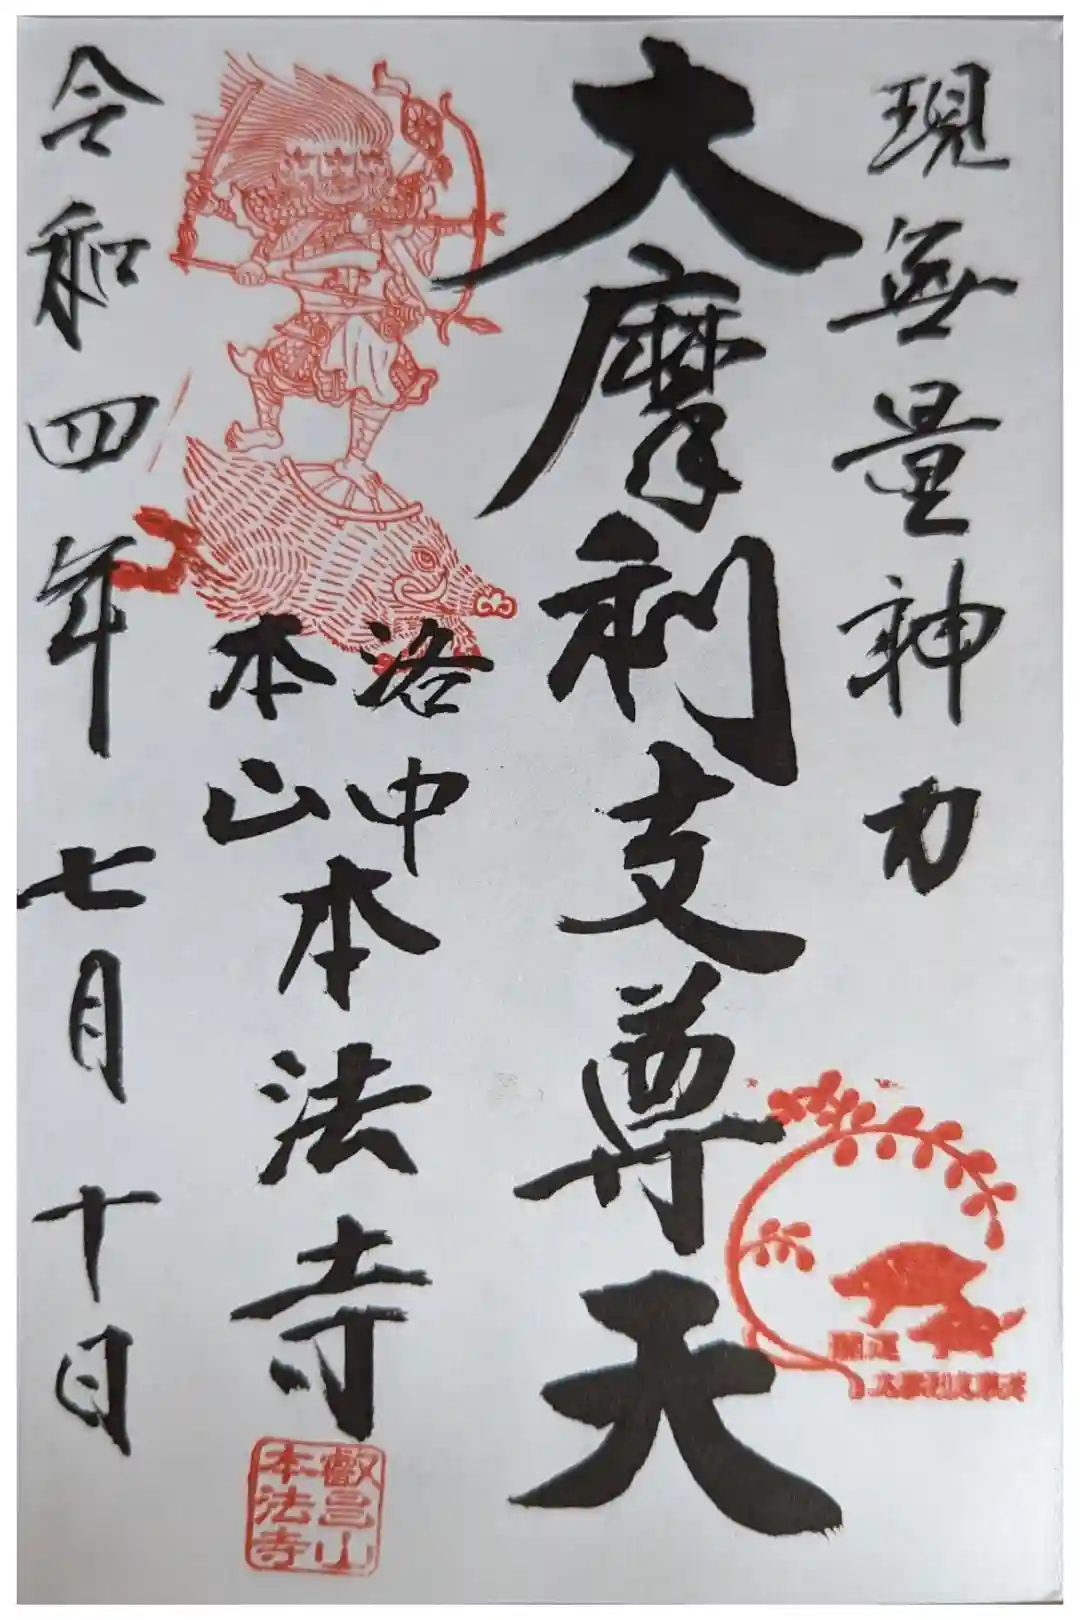 現無量神力
大摩利支尊天
開運
大摩利支尊天
洛中
本山
本法寺
叡昌山
本法寺
令和四年七月十日